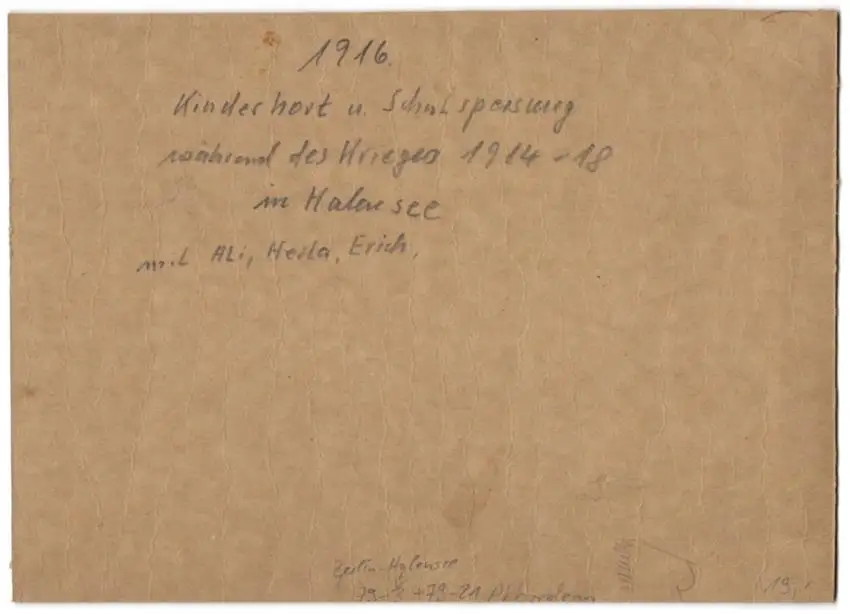 1916.
Kinderhort u. Schulspeisung
während des Krieges 1914-18
in Halensee
mit Ali, Herta, Erich,
Berlin-Halensee
19,-